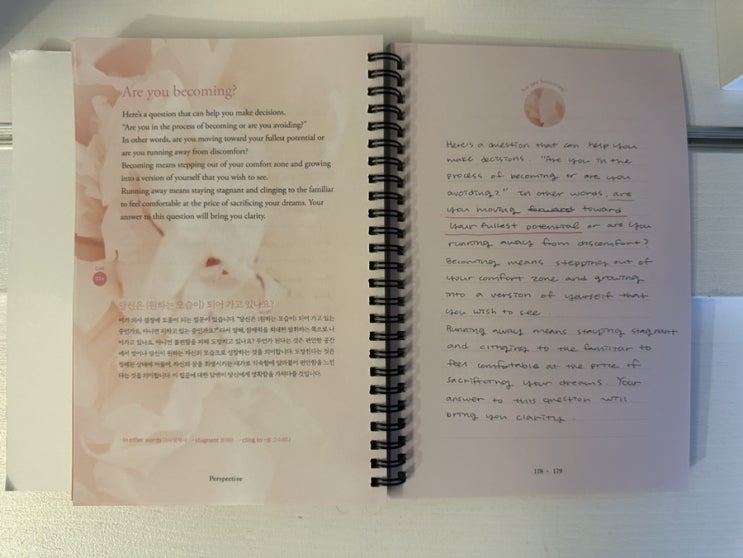 Are you becoming?
Here's a question that can help you make decisions.
"Are you in the process of becoming or are you avoiding?"
In other words, are you moving toward your fullest potential or
are you running away from discomfort?
Becoming means stepping out of your comfort zone and growing
into a version of yourself that you wish to see.
Running away means staying stagnant and clinging to the familiar
to feel comfortable at the price of sacrificing your dreams. Your
answer to this question will bring you clarity.
당신은 (원하는 모습이) 되어 가고 있나요?
여기 의사 결정에 도움이 되는 질문이 있습니다. "당신은 (원하는 모습이) 되어 가고 있는
중인가요, 아니면 피하고 있는 중인가요?" 다시 말해, 잠재력을 최대한 발휘하는 쪽으로 나
아가고 있나요, 아니면 불편함을 피해 도망치고 있나요? 무언가 된다는 것은 편안한 공간
에서 벗어나 당신이 원하는 자신의 모습으로 성장하는 것을 의미합니다. 도망친다는 것은
정체된 상태에 머물며, 자신의 꿈을 희생시키는 대가로 익숙함에 매달려 편안함을 느낀
다는 것을 의미합니다. 이 질문에 대한 답변이 당신에게 명확함을 가져다줄 것입니다.
in other words 다시 말해서 stagnant cling to ~을 고수하다
Perspective
Are you becoming?
Here's a question that can help you
make decisions. "Are you in the
process of becoming or are you
avoiding?" In other words, are
you moving forward toward
your fullest potential or are you
running away from discomfort?
Becoming means stepping out of
your comfort zone and growing
into a version of yourself that
you wish to see.
Running away means staying stagnant
and clinging to the familiar to
feel comfortable at the price of
sacrificing your dreams. Your
answer to this question will
bring you clarity.
178 · 179